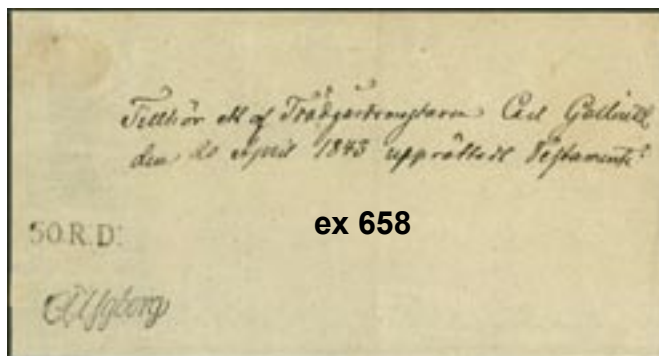 Tillhör ett af Trädgårdsmästaren Carl
den 20 April 1843 upprättadt Testamente
ex 658
50.R.D.